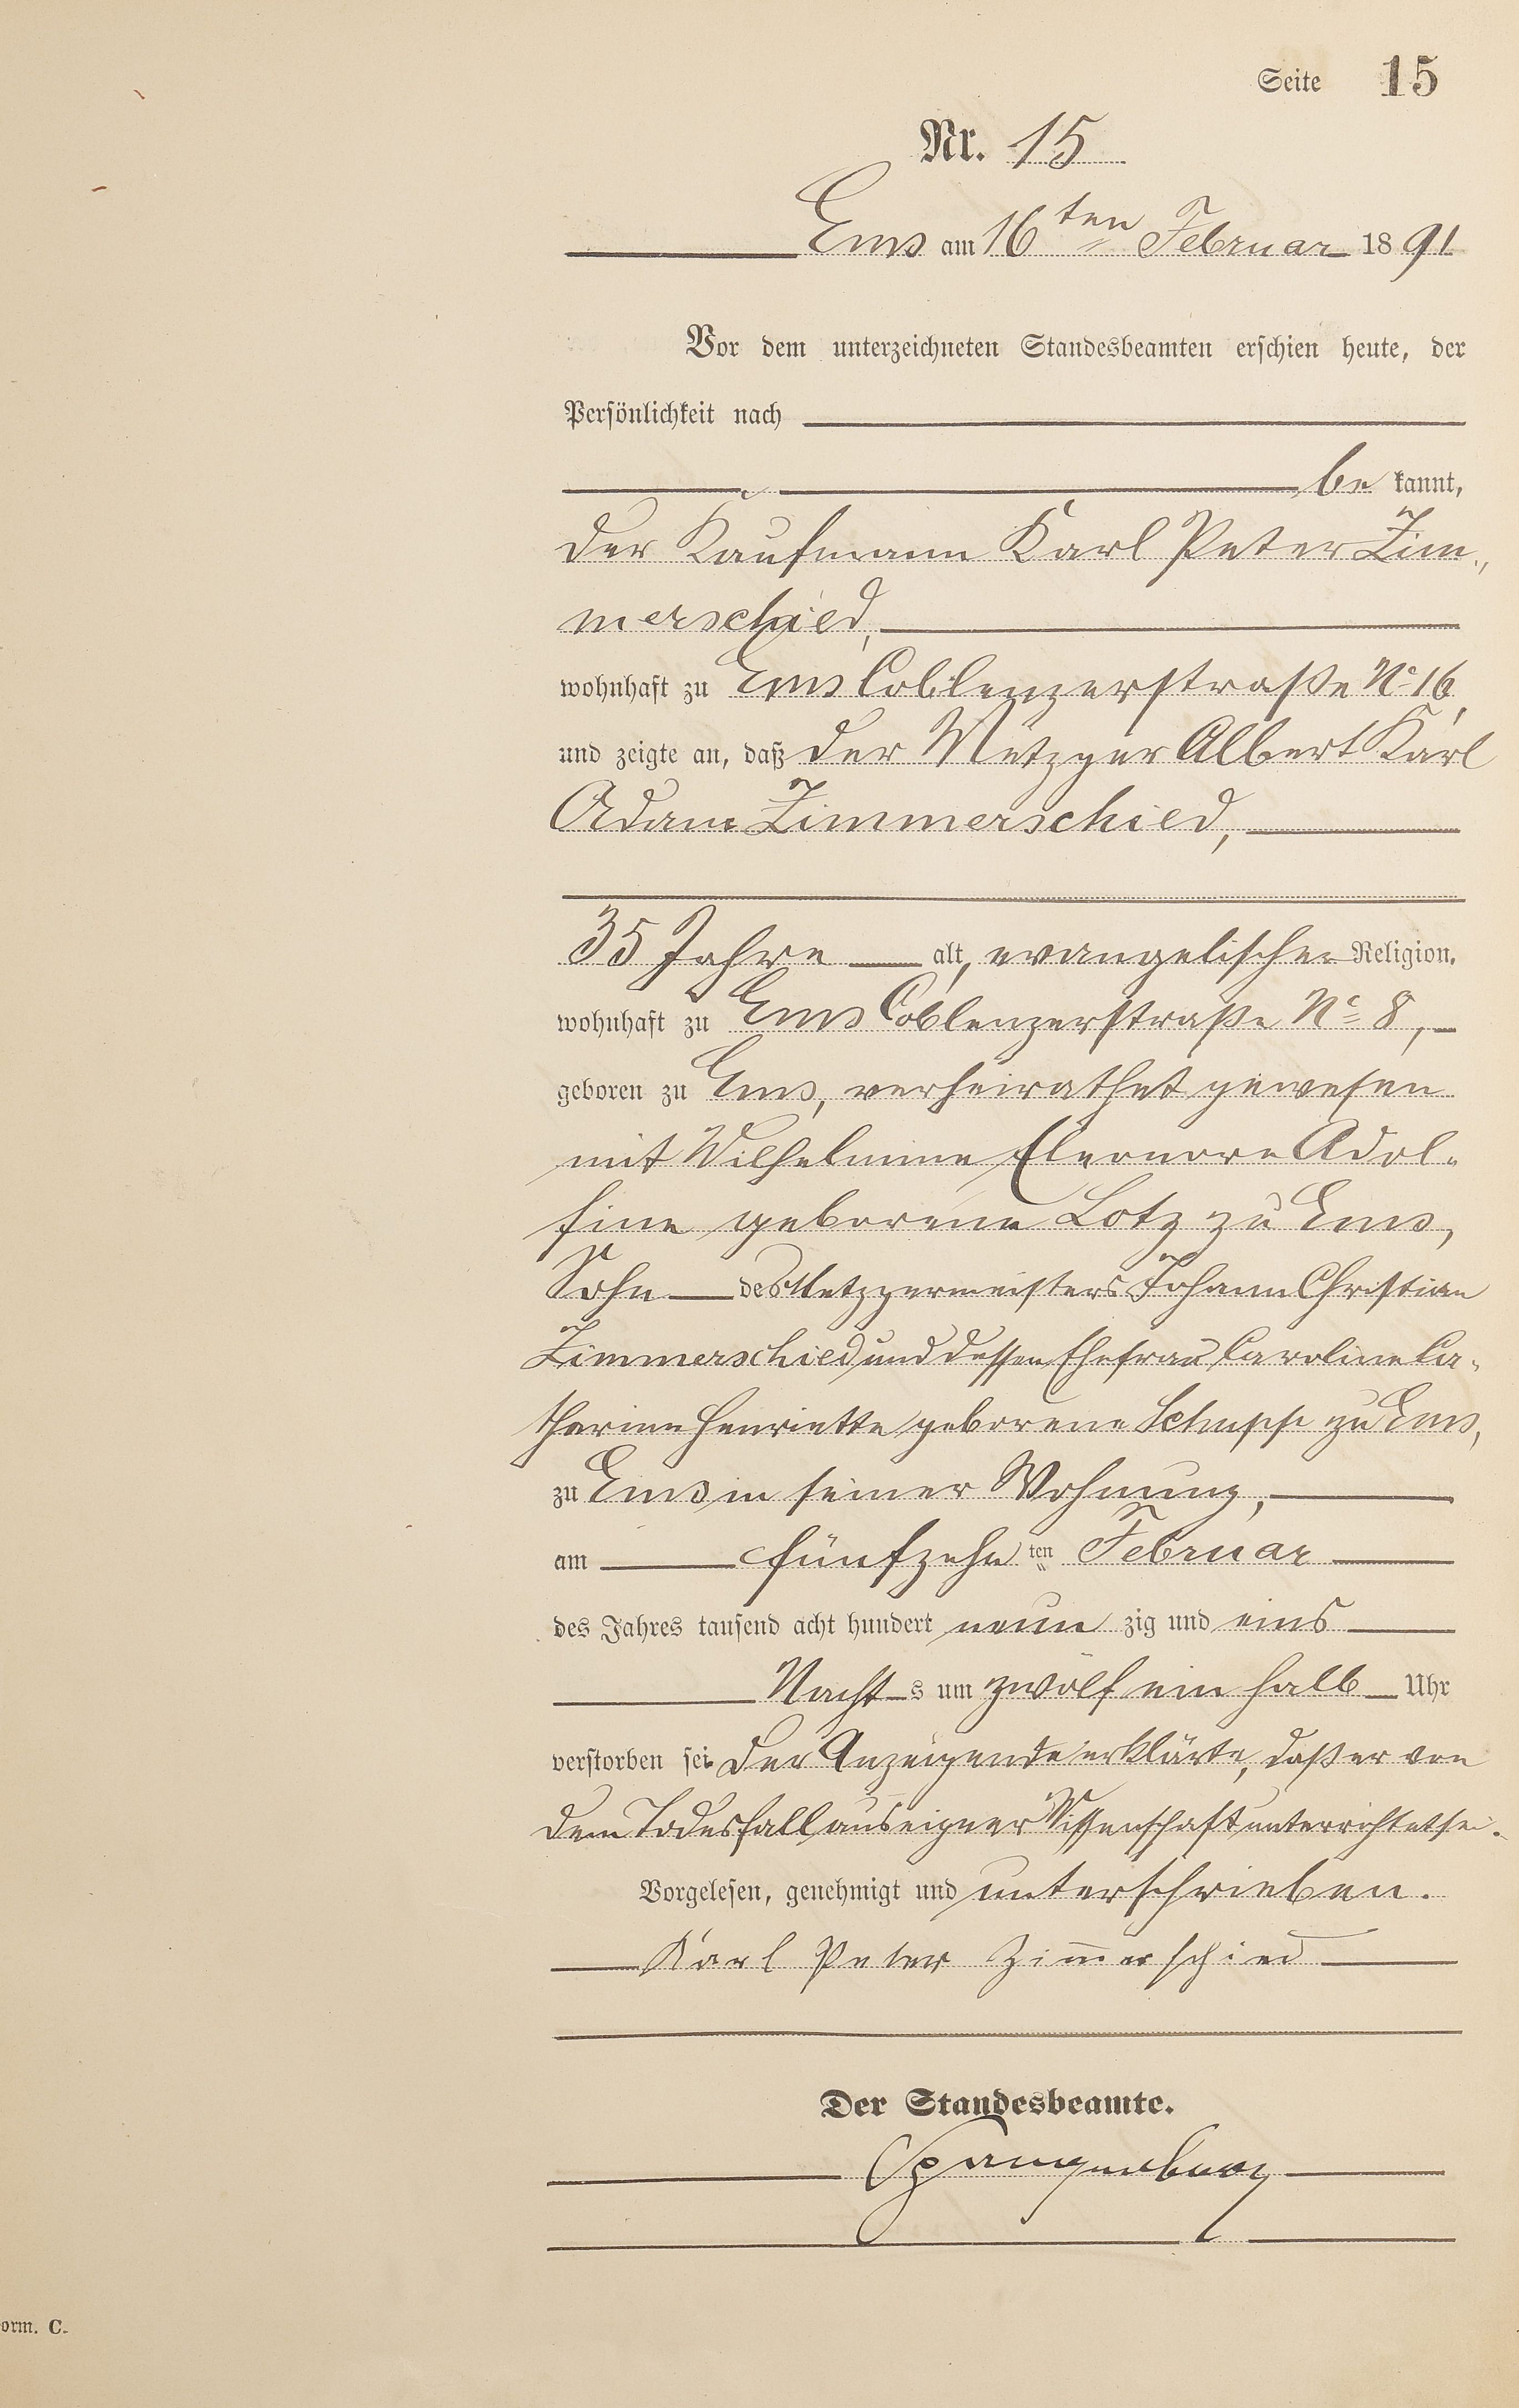 Seite 15
Nr. 15
Ems am 16ten Februar 1891
Vor dem unterzeichneten Standesbeamten erschien heute, der
Persönlichkeit nach
be kannt,
der Kaufmann Karl Peter Zim-
merschied,
wohnhaft zu Ems Coblenzerstraße No 16,
und zeigte an, daß der Metzger Albert Karl
Adam Zimmerschied,
35 Jahre alt, evangelischer Religion,
wohnhaft zu Ems Coblenzerstraße No 8,
geboren zu Ems, verheirathet gewesen
mit Wilhelmine Eleonore Adol-
fine geborene Lotz zu Ems,
Sohn des Metzgermeisters Johann Christian
Zimmerschied und dessen Ehefrau Caroline Ca-
tharine Henriette geborene Schupp zu Ems,
zu Ems in seiner Wohnung,
am fünfzehnten Februar
des Jahres tausend acht hundert neun zig und eins
Nachts um zwölf ein halb Uhr
verstorben sei. Der Anzeigende erklärte, daß er von
dem Todesfall aus eigner Wissenschaft unterrichtet sei.
Vorgelesen, genehmigt und unterschrieben.
Karl Peter Zim̅erschied
Der Standesbeamte.
Spangenberg
orm. C.